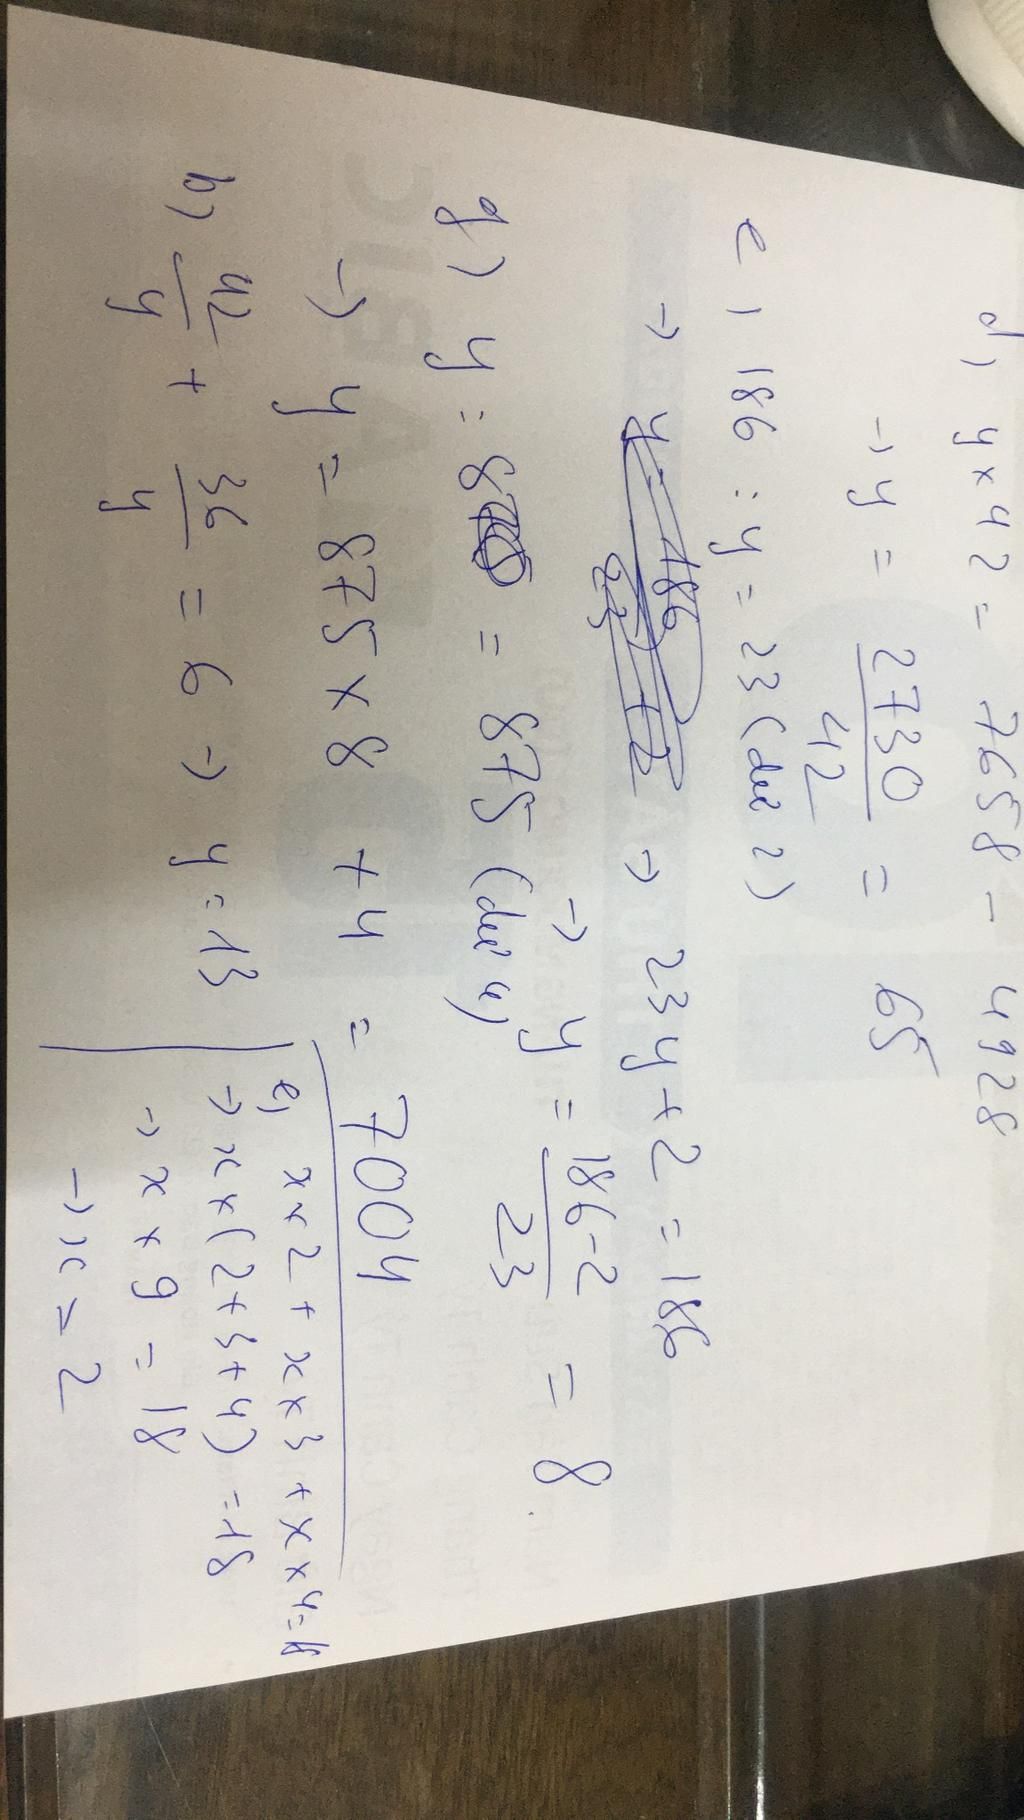 d, y x 42 = 7658 - 4928
→ y = 2730 / 42 = 65
e, 186 : y = 23 (dư 2)
→ 23y + 2 = 186
→ y = 186-2 / 23 = 8.
g) y : 8 = 875 (dư 4)
→ y = 875 x 8 + 4 = 7004
b) 42/y + 36/y = 6 → y = 13
e, x x 2 + x x 3 + x x 4 = 18
→ x x (2+3+4) = 18
→ x x 9 = 18
→ x = 2